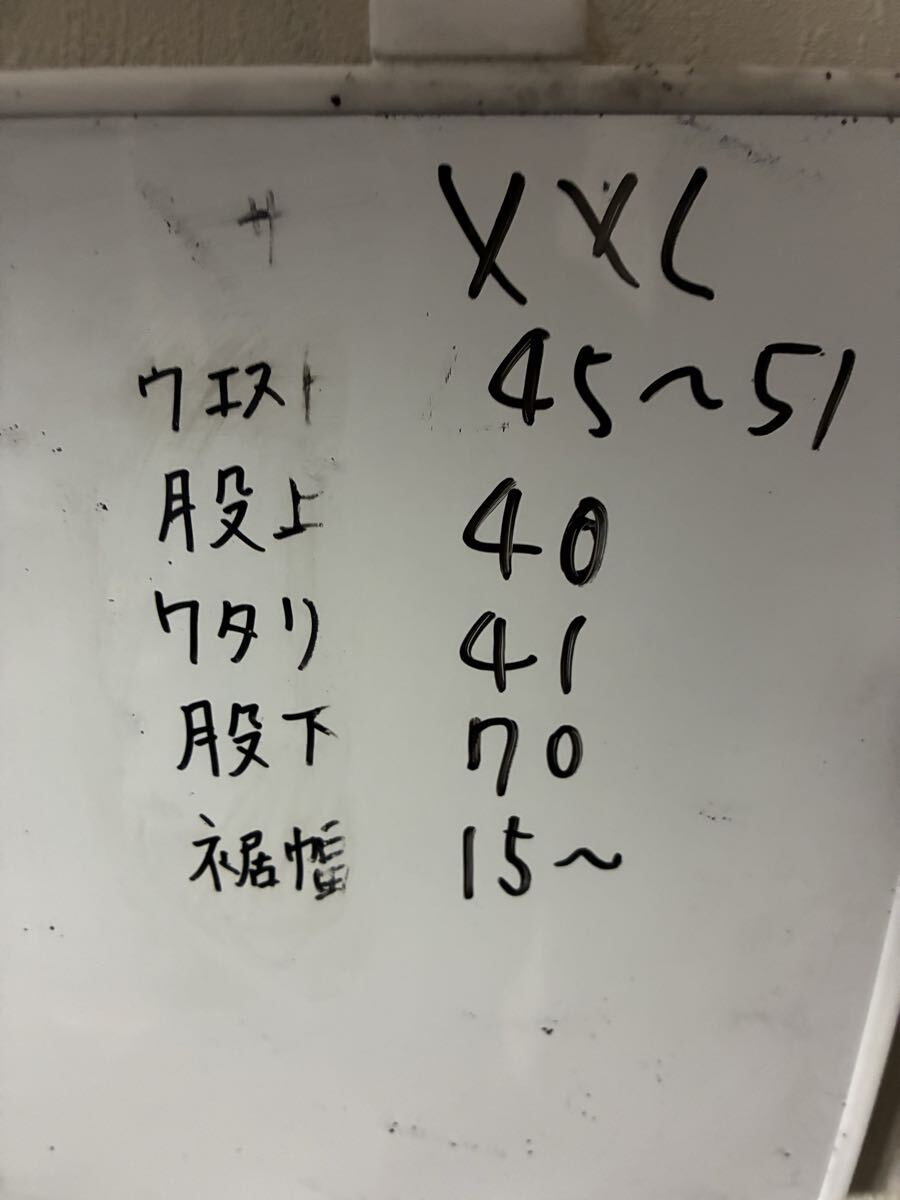 XXL
ウエスト 45～51
股上 40
ワタリ 41
股下 70
裾幅 15～